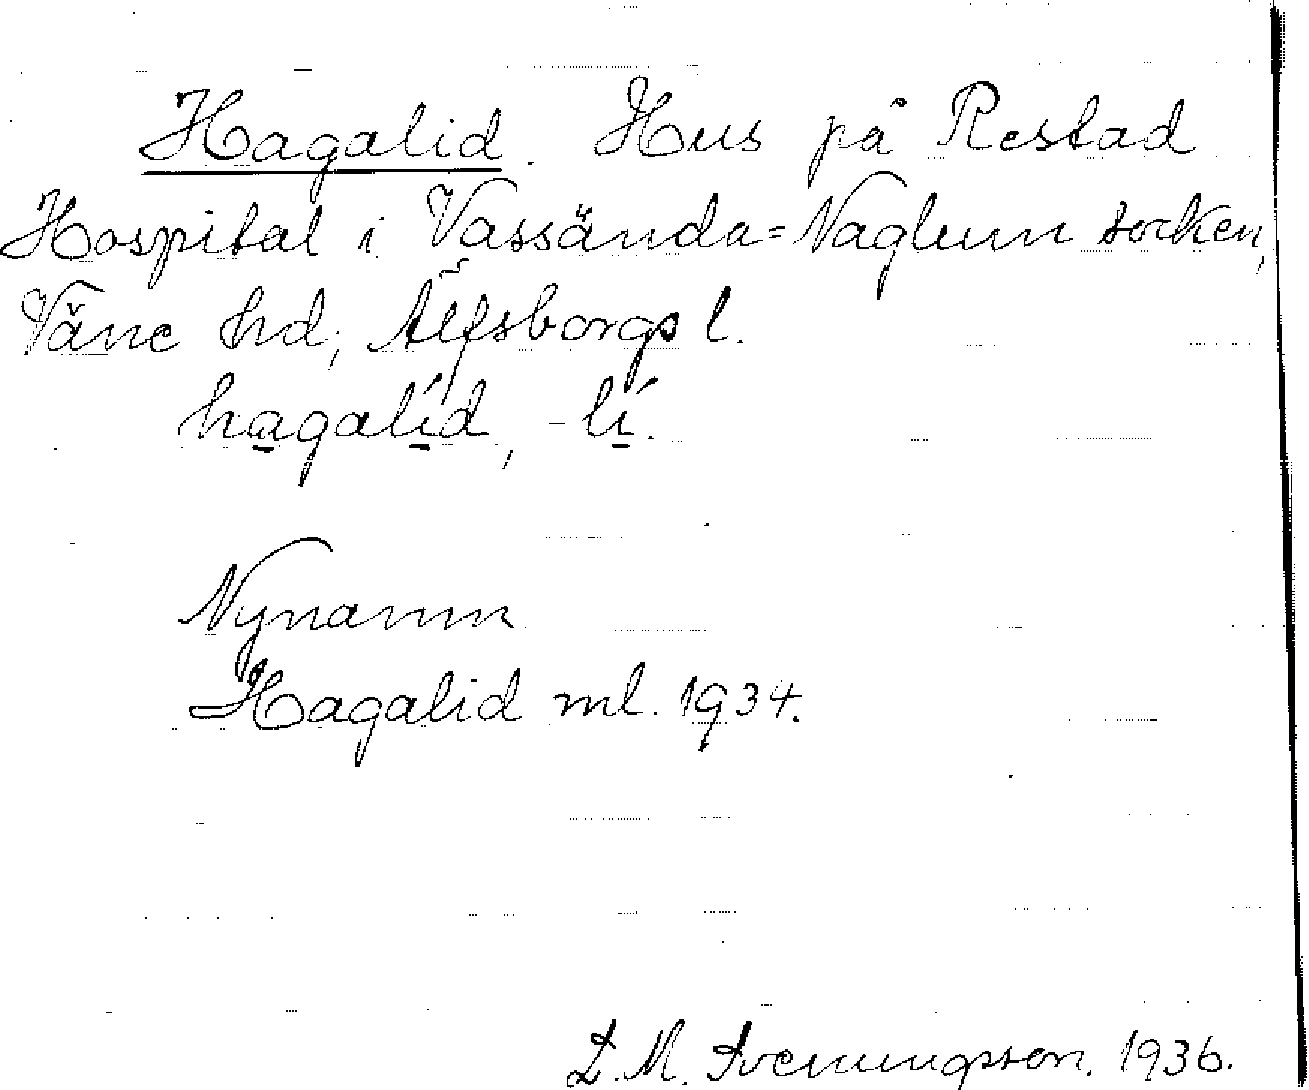 Hagalid. Hus på Restad
Hospital i Vassända=Naglum socken,
Väne hd, Älfsborgs l.
hagalíd, -lí.
Nynamn
Hagalid ml. 1934.
L. M. Svenungsson. 1936.